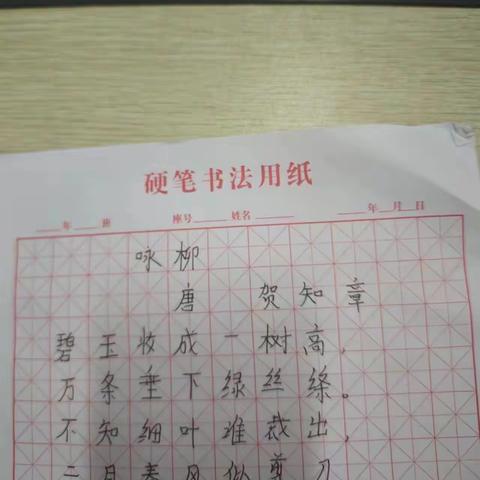 硬笔书法用纸
___年___班 座号______姓名______ ___年__月__日
咏柳
唐 贺知章
碧玉妆成一树高，
万条垂下绿丝绦。
不知细叶谁裁出，
二月春风似剪刀